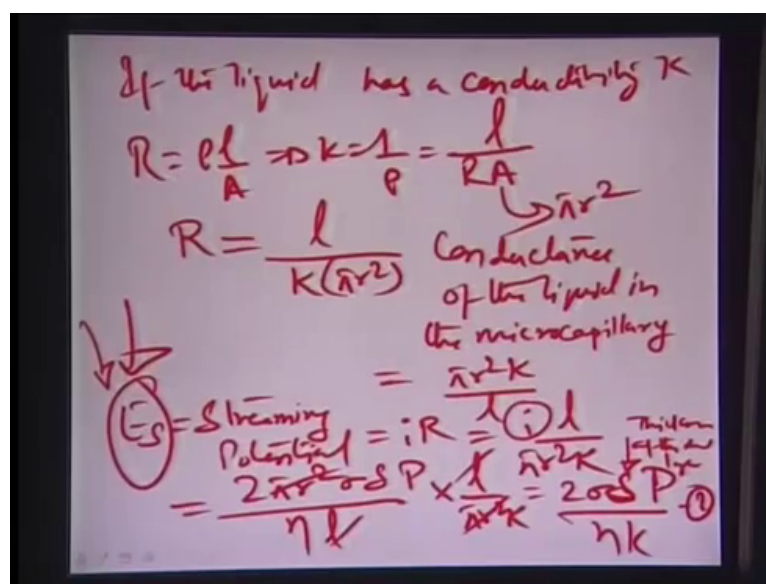 If the liquid has a conductivity K
R = ρ l/A ⇒ K = 1/ρ = l/RA
πr²
R = l/K(πr²) Conductance
of the liquid in
the microcapillary
= πr²K/l
Es = Streaming Potential = iR = i l/πr²K
= 2πr²σδP/ηl × l/πr²K = 2σδP/ηK